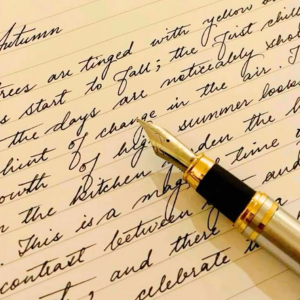 Autumn
trees are tinged with yellow
start to fall; the first chill
the days are noticeably
hint of change in the air. T
owth of high summer look
the kitchen garden the b
This is a magic time
contrast between
, and there
celebrate